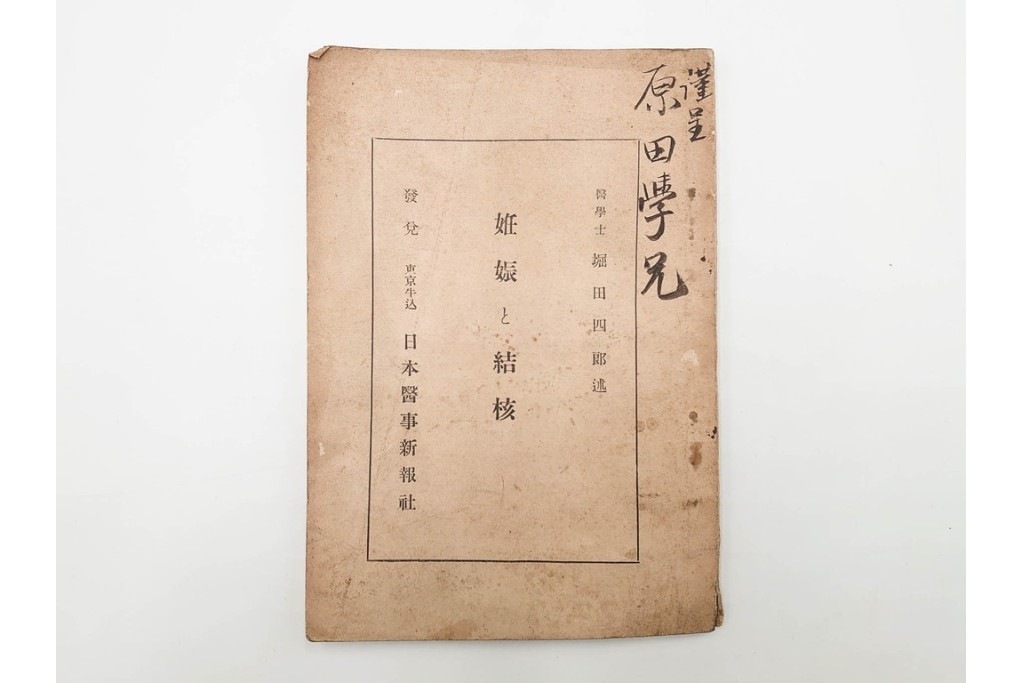 謹呈
原田學兄
醫學士 堀田四郎述
姙娠と結核
發兌 東京牛込 日本醫事新報社